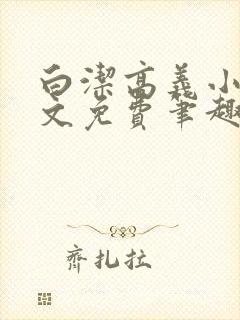 白潔高義小
文免費筆趣
齊扎拉